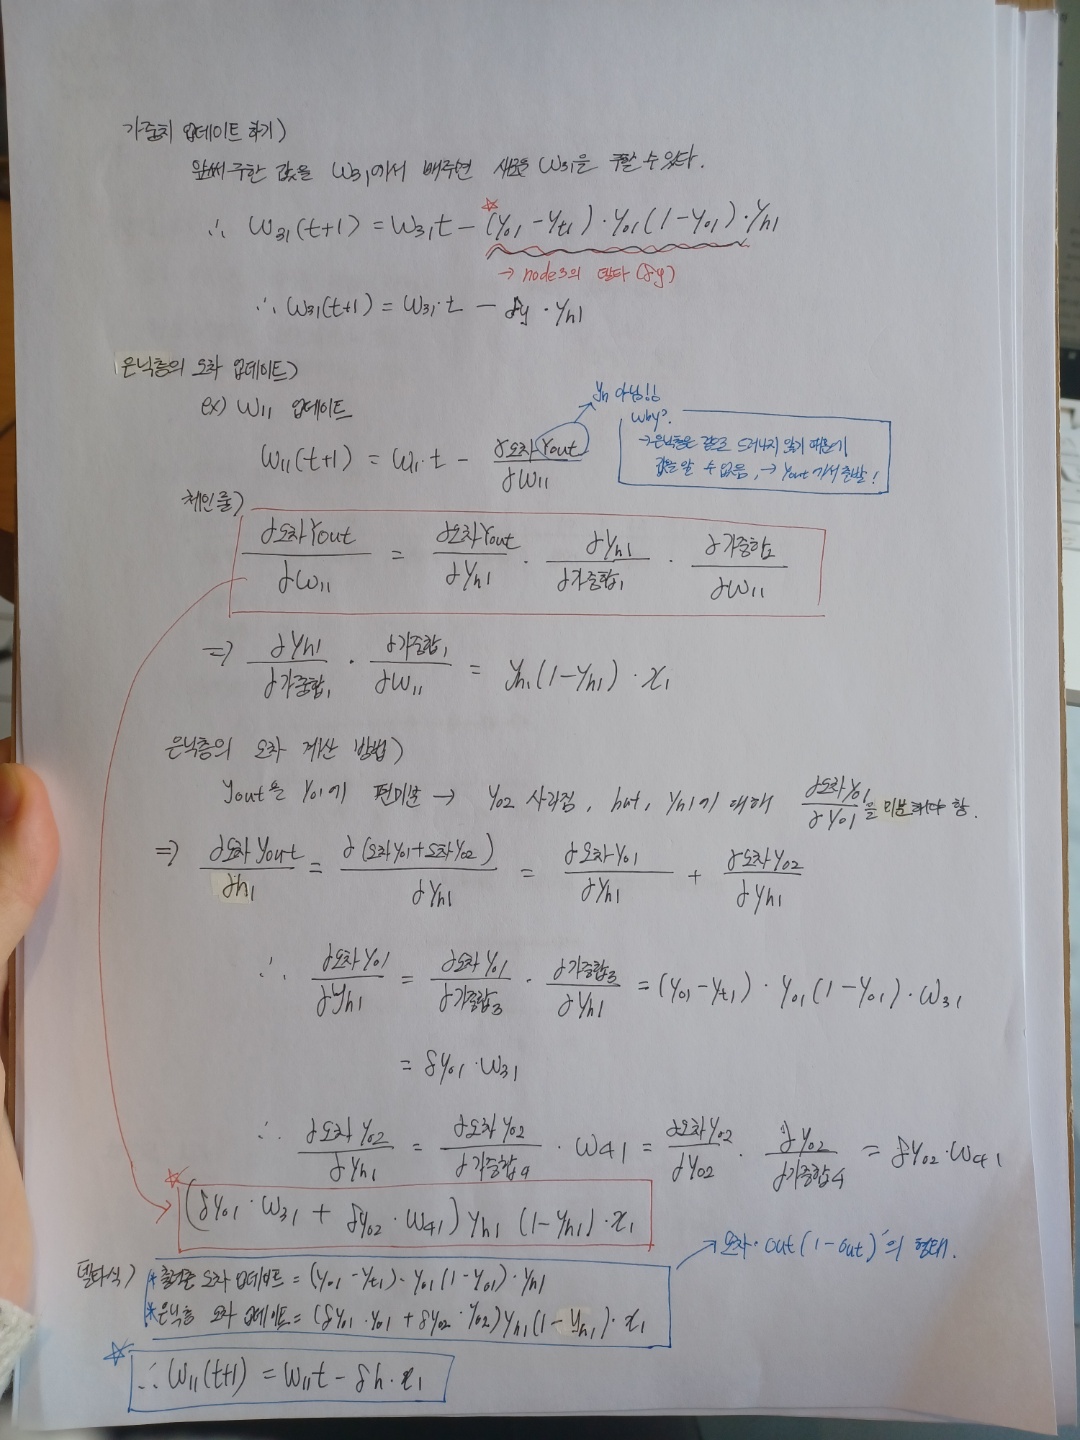 가중치 업데이트 하기)
앞써 구한 값을 W31에서 빼주면 새로운 W31을 구할 수 있다.
∴ W31(t+1) = W31t - (yo1 - yt1) · yo1(1-yo1) · yh1
→ node3의 델타 (δy)
∴ W31(t+1) = W31·t - δy · yh1
은닉층의 오차 업데이트)
ex) W11 업데이트
yh 아님!!
Why?
→ 은닉층은 겉으로 드러나지 않기 때문에
값을 알 수 없음, → Yout에서 출발!
W11(t+1) = W11·t - ∂오차Yout/∂W11
체인룰)
∂오차Yout/∂W11 = ∂오차Yout/∂yh1 · ∂yh1/∂가중합1 · ∂가중합1/∂W11
⇒ ∂yh1/∂가중합1 · ∂가중합1/∂W11 = yh1(1-yh1) · x1
은닉층의 오차 계산 방법)
Yout을 Yo1에 편미분 → Yo2 사라짐, but, Yh1에 대해 ∂오차Yo1/∂Yo1을 미분해야 함.
⇒ ∂오차Yout/∂h1 = ∂(오차Yo1+오차Yo2)/∂Yh1 = ∂오차Yo1/∂Yh1 + ∂오차Yo2/∂Yh1
∴ ∂오차Yo1/∂Yh1 = ∂오차Yo1/∂가중합3 · ∂가중합3/∂Yh1 = (yo1-yt1) · yo1(1-yo1) · W31
= δyo1 · W31
∴ ∂오차Yo2/∂Yh1 = ∂오차Yo2/∂가중합4 · W41 = ∂오차Yo2/∂Yo2 · ∂Yo2/∂가중합4 = δyo2 · W41
(δyo1 · W31 + δyo2 · W41) yh1 (1-yh1) · x1
→ 오차·out(1-out)의 형태.
델타식) * 출력층 오차 업데이트 = (yo1-yt1) · yo1(1-yo1) · yh1
* 은닉층 오차 업데이트 = (δyo1 · yo1 + δyo2 · yo2) yh1(1-yh1) · x1
∴ W11(t+1) = W11t - δh · x1